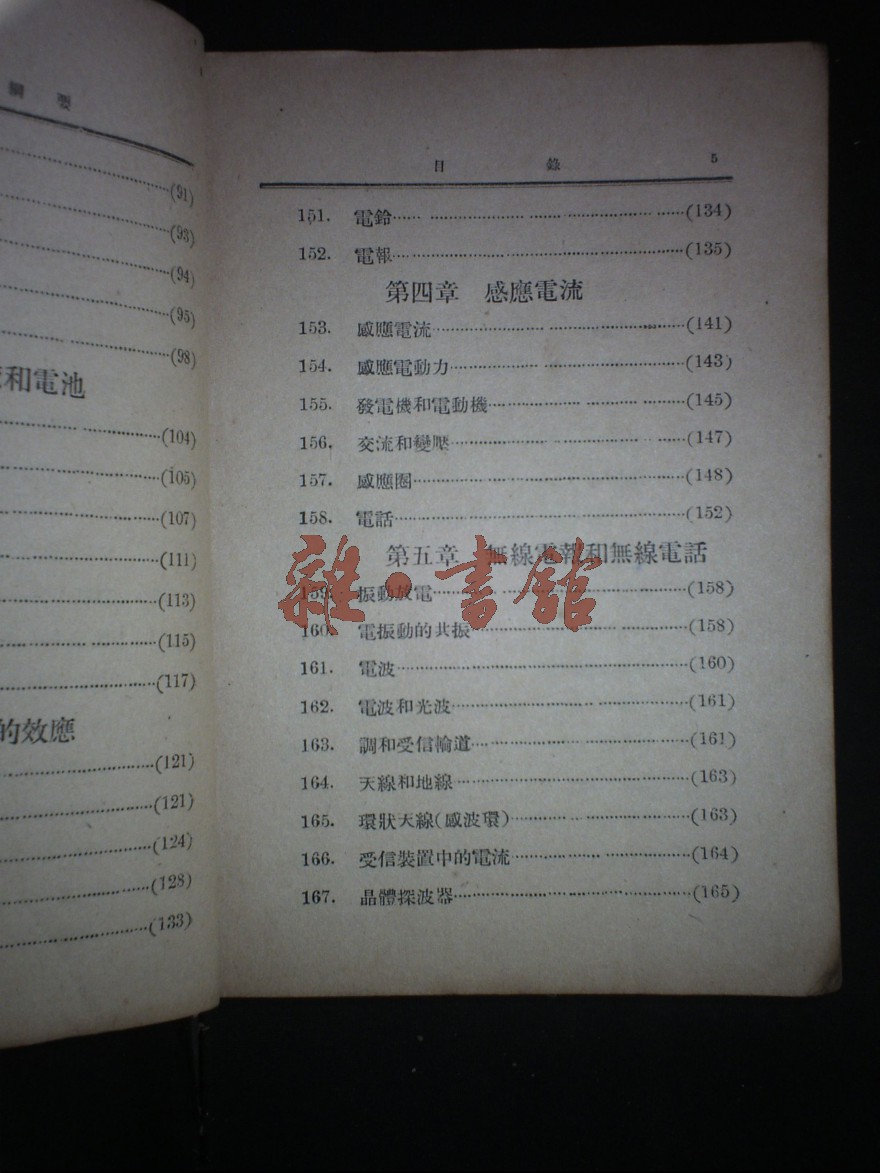 綱 要
(91)
(93)
(94)
(95)
(98)
和電池
(104)
(105)
(107)
(111)
(113)
(115)
(117)
的效應
(121)
(121)
(124)
(128)
(133)
目 錄 5
151. 電鈴……(134)
152. 電報……(135)
第四章 感應電流
153. 感應電流……(141)
154. 感應電動力……(143)
155. 發電機和電動機……(145)
156. 交流和變壓……(147)
157. 感應圈……(148)
158. 電話……(152)
第五章 無線電報和無線電話
159. 振動放電……(158)
160. 電振動的共振……(158)
161. 電波……(160)
162. 電波和光波……(161)
163. 調和受信輪道……(161)
164. 天線和地線……(163)
165. 環狀天線(感波環)……(163)
166. 受信裝置中的電流……(164)
167. 晶體探波器……(165)
雜·書館